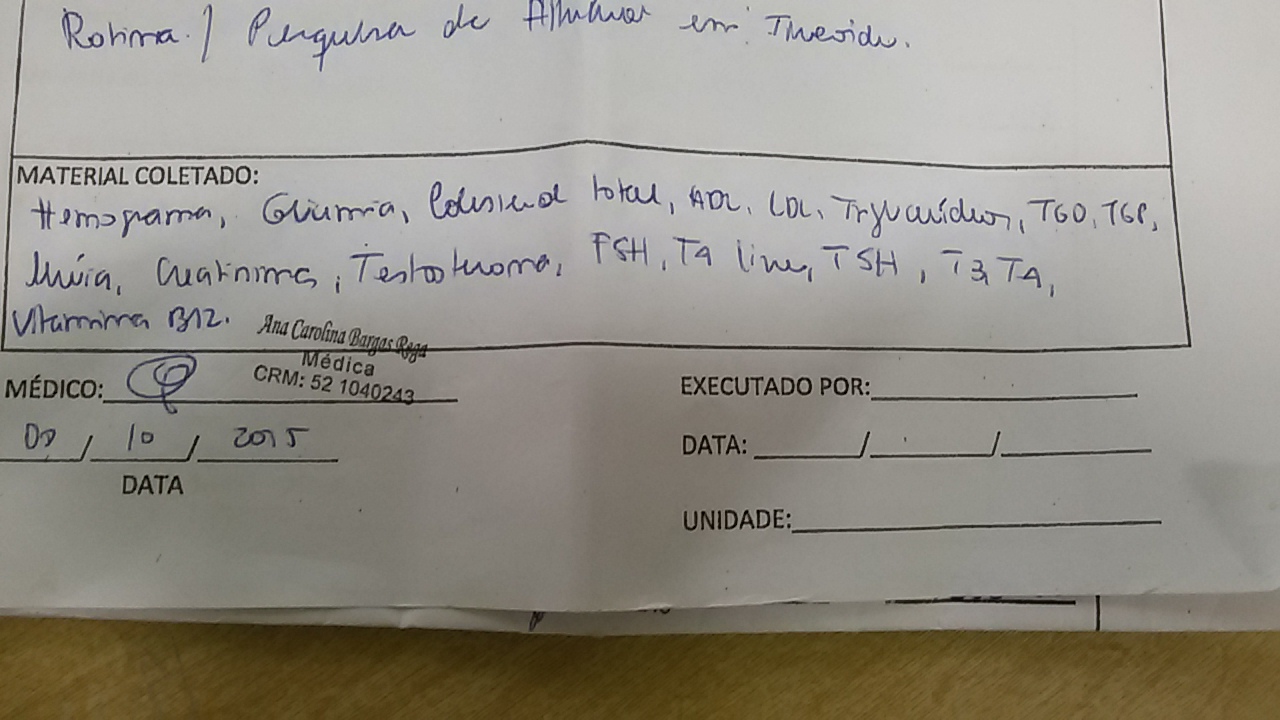 Rotina. / Pesquisa de em Tireoide.
MATERIAL COLETADO:
Hemograma, Glicemia, Colesterol total, HDL, LDL, Triglicerídeos, TGO, TGP,
Uréia, Creatinina, Testosterona, FSH, T4 livre, TSH, T3, T4,
Vitamina B12.
Ana Carolina Bargas Rega
Médica
CRM: 52 1040243
MÉDICO:
/ 10 / 2015
DATA
EXECUTADO POR:
DATA: / /
UNIDADE: